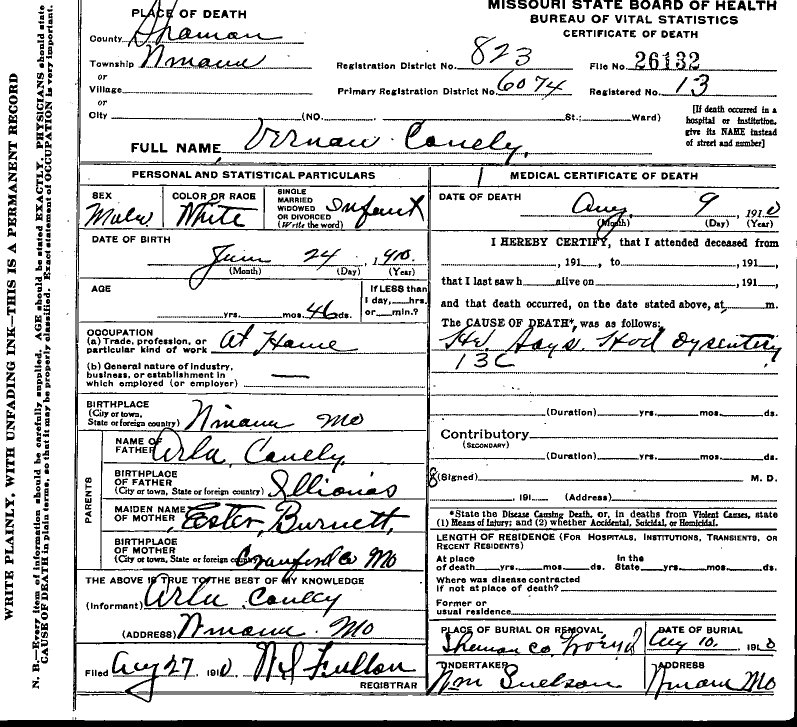 MISSOURI STATE BOARD OF HEALTH
BUREAU OF VITAL STATISTICS
CERTIFICATE OF DEATH
PLACE OF DEATH
County
Township
or
Village
or
City (NO. St.; Ward)
Registration District No. 823 File No. 26132
Primary Registration District No. 6074 Registered No. 13
[If death occurred in a
hospital or institution,
give its NAME instead
of street and number]
FULL NAME Conely
WRITE PLAINLY, WITH UNFADING INK—THIS IS A PERMANENT RECORD
N. B.—Every item of information should be carefully supplied. AGE should be stated EXACTLY. PHYSICIANS should state
CAUSE OF DEATH in plain terms, so that it may be properly classified. Exact statement of OCCUPATION is very important.
PERSONAL AND STATISTICAL PARTICULARS
SEX
Male
COLOR OR RACE
White
SINGLE
MARRIED
WIDOWED
OR DIVORCED
(Write the word)
Infant
DATE OF BIRTH
June 24, 1910.
(Month) (Day) (Year)
AGE
yrs. mos. 46 ds.
If LESS than
1 day, hrs.
or min.?
OCCUPATION
(a) Trade, profession, or
particular kind of work At Home
(b) General nature of industry,
business, or establishment in
which employed (or employer) —
BIRTHPLACE
(City or town,
State or foreign country) Mo
PARENTS
NAME OF
FATHER Arla Conely
BIRTHPLACE
OF FATHER
(City or town, State or foreign country) Illionis
MAIDEN NAME
OF MOTHER Ester Burnett,
BIRTHPLACE
OF MOTHER
(City or town, State or foreign country) Crawford Co Mo
THE ABOVE IS TRUE TO THE BEST OF MY KNOWLEDGE
(Informant) Arla Conley
(ADDRESS) Mo
Filed Aug 27 1910 Fulton
REGISTRAR
MEDICAL CERTIFICATE OF DEATH
DATE OF DEATH
Aug 9, 1910
(Month) (Day) (Year)
I HEREBY CERTIFY, that I attended deceased from
, 191 , to , 191 ,
that I last saw h alive on , 191 ,
and that death occurred, on the date stated above, at m.
The CAUSE OF DEATH*, was as follows:
Says Had Dysentery
13C
(Duration) yrs. mos. ds.
Contributory
(SECONDARY)
(Duration) yrs. mos. ds.
(Signed) M. D.
, 191 (Address)
*State the Disease Causing Death, or, in deaths from Violent Causes, state
(1) Means of Injury; and (2) whether Accidental, Suicidal, or Homicidal.
LENGTH OF RESIDENCE (FOR HOSPITALS, INSTITUTIONS, TRANSIENTS, OR
RECENT RESIDENTS)
At place
of death yrs. mos. ds.
In the
State yrs. mos. ds.
Where was disease contracted
if not at place of death?
Former or
usual residence
PLACE OF BURIAL OR REMOVAL
DATE OF BURIAL
Aug 10, 1910
UNDERTAKER
Wm Snelson
ADDRESS
Mo